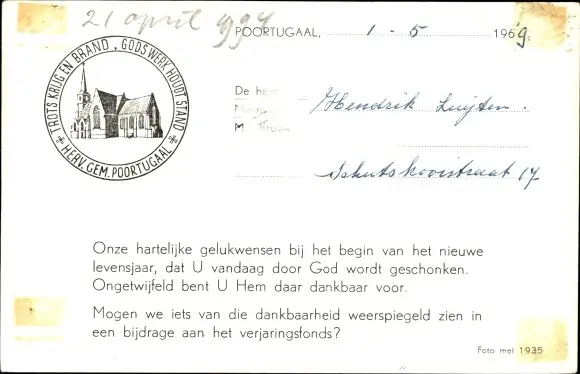 21 april 1994
POORTUGAAL, 1 - 5 1969.
TROTS KRIJG EN BRAND, GODSWERK HOUDT STAND
HERV. GEM. POORTUGAAL
De heer
Hendrik Luijten.
M
Schutskooistraat 17
Onze hartelijke gelukwensen bij het begin van het nieuwe
levensjaar, dat U vandaag door God wordt geschonken.
Ongetwijfeld bent U Hem daar dankbaar voor.
Mogen we iets van die dankbaarheid weerspiegeld zien in
een bijdrage aan het verjaringsfonds?
Foto mei 1935